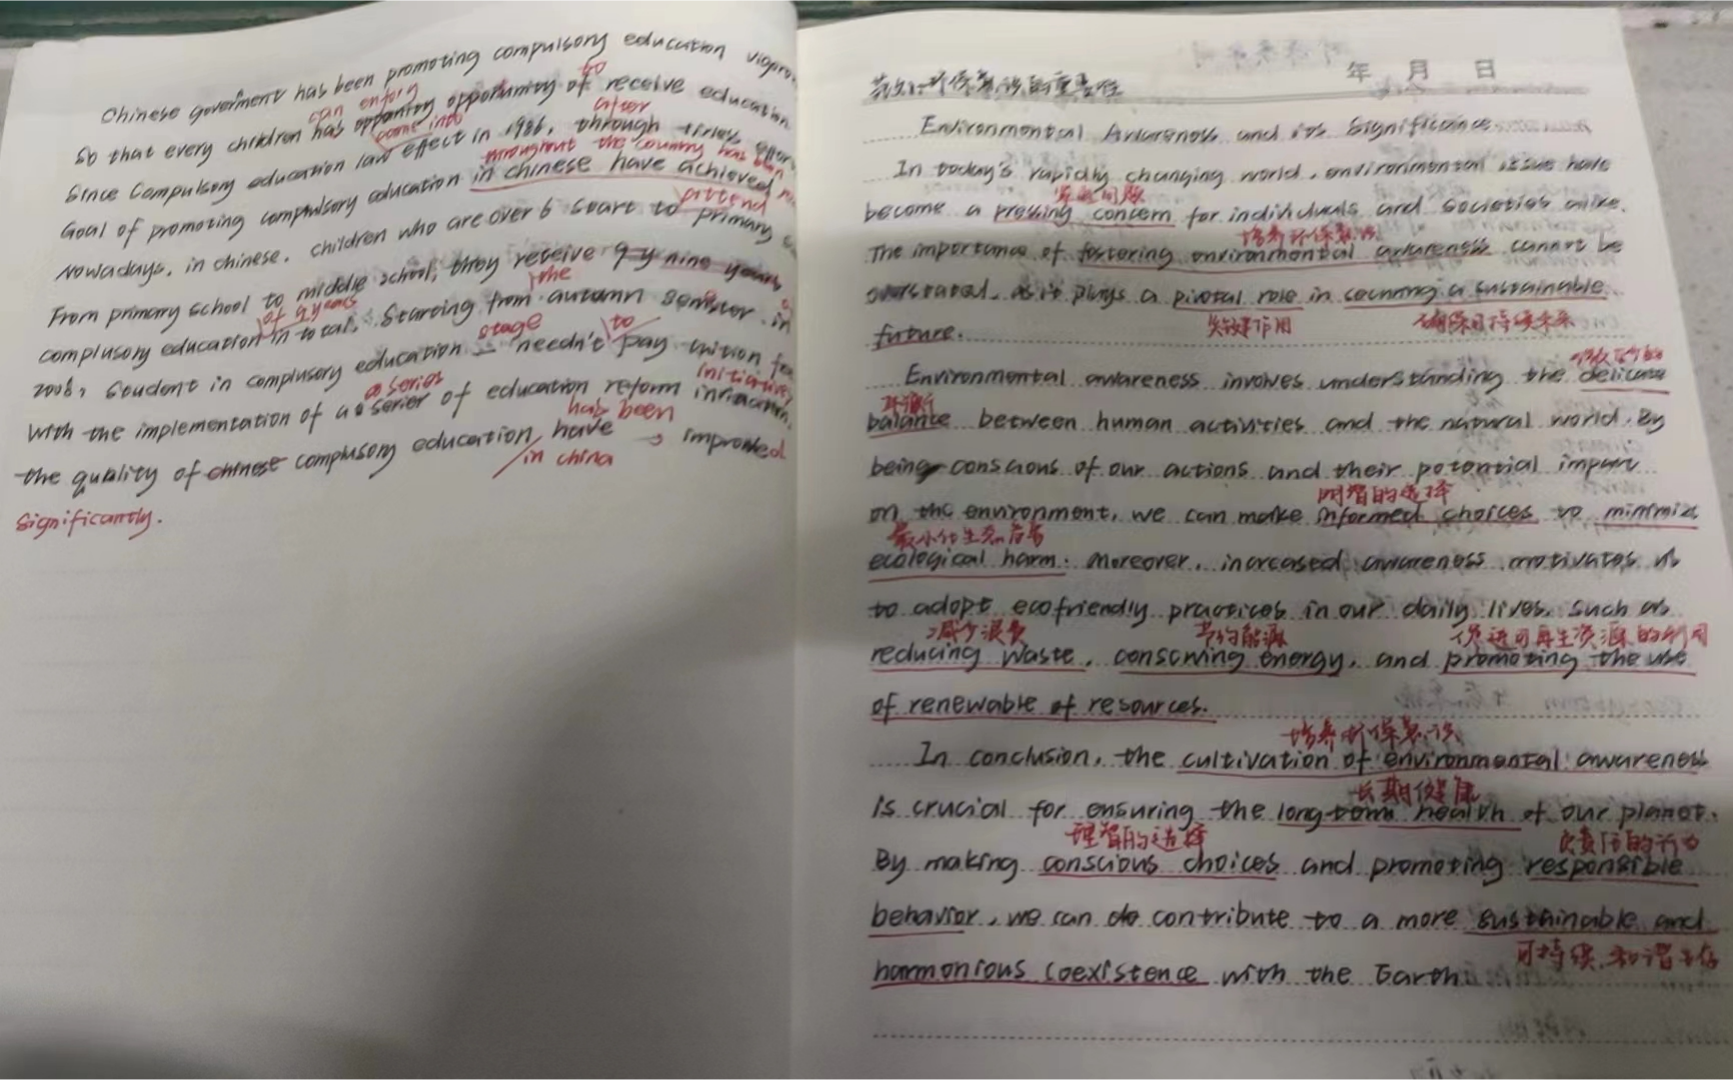 Chinese goverment has been promoting compulsory education
can enjoy to
So that every children has opportunity of receive education
come into after
Since Compulsory education law effect in 1986, through
throughout the country has been
Goal of promoting compulsory education in chinese have achieved
attend
Nowadays, in chinese, children who are over 6 to primary
From primary school to middle school, they receive 9 y nine years
of 9 years the
complusory education in total. Starting from autumn in
stage to
2008, Student in complusory education needn't pay tuition fee
a series initiatives
With the implementation of a series of education reform
has been
the quality of chinese complusory education have improved
in china
significantly.
年 月 日
环保意识的重要性
Environmental Awareness and its Significance
In today's rapidly changing world, environmental issue have
紧迫问题
become a pressing concern for individuals and societies alike.
培养环保意识
The importance of fostering environmental awareness cannot be
overstated, as it plays a pivotal role in securing a sustainable
future.
关键作用 确保可持续未来
Environmental awareness involves understanding the delicate
平衡
balance between human activities and the natural world. By
being conscious of our actions and their potential impact
明智的选择
on the environment, we can make informed choices to minimize
最小化生态危害
ecological harm. Moreover, increased awareness motivates us
to adopt ecofriendly practices in our daily lives, such as
减少浪费 节约能源 促进可再生资源的利用
reducing waste, conserving energy, and promoting the use
of renewable of resources.
培养环保意识
In conclusion, the cultivation of environmental awareness
长期健康
is crucial for ensuring the long-term health of our planet.
理智的选择 负责任的行为
By making conscious choices and promoting responsible
behavior, we can do contribute to a more sustainable and
可持续和谐共存
harmonious coexistence with the Earth